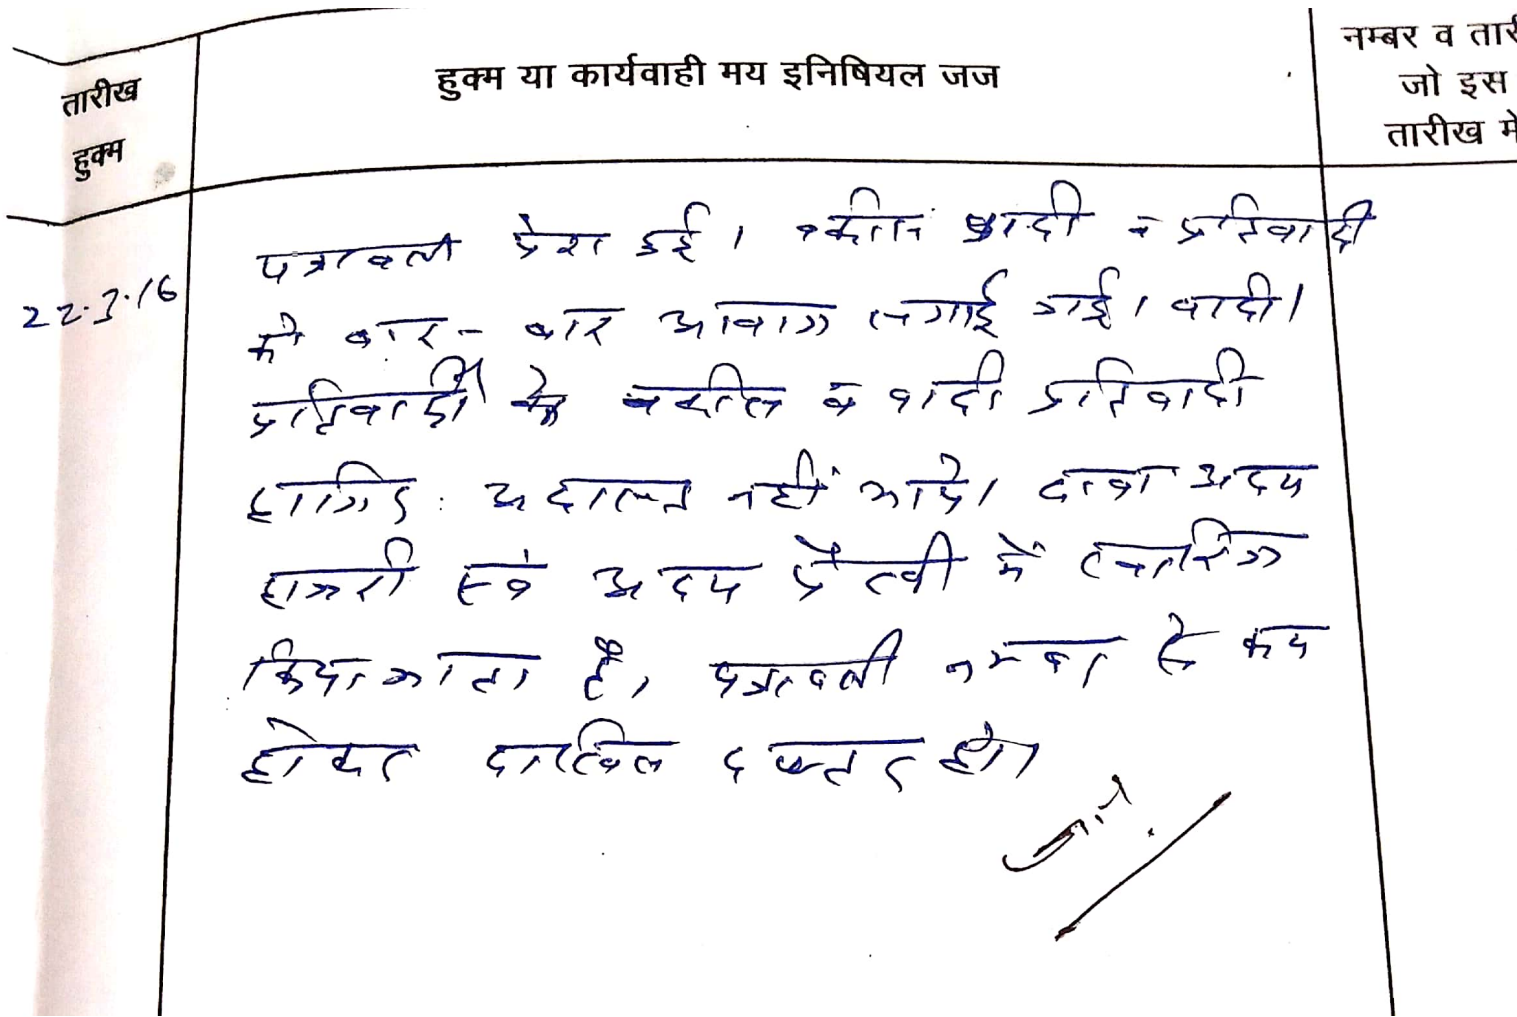 तारीख
हुक्म
हुक्म या कार्यवाही मय इनिषियल जज
नम्बर व तारी
जो इस
तारीख मे
22.3.16
पत्रावली पेश हुई। वकील वादी व प्रतिवादी
को बार-बार आवाज लगाई गई। वादी।
प्रतिवादी के वकील व वादी प्रतिवादी
हाजिर अदालत नहीं आये। दावा अदम
हाजरी एवं अदम पैरवी में खारिज
किया जाता है। पत्रावली नम्बर से कम
होकर दाखिल दफ्तर हो।